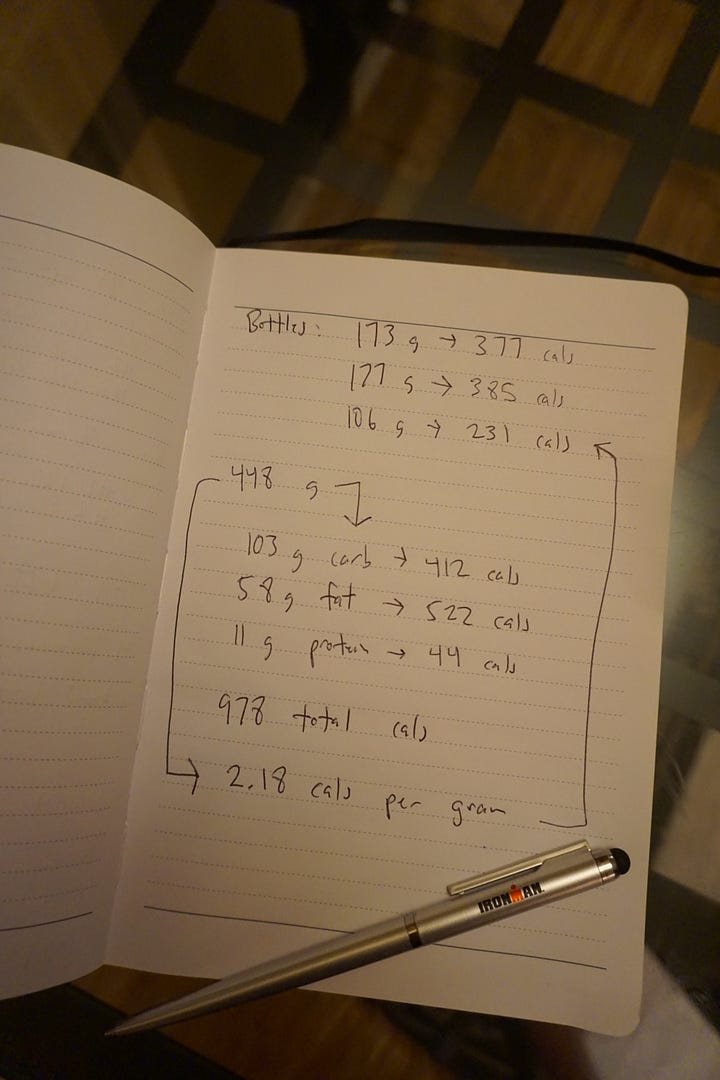 Bottles: 173 g → 377 cals
177 g → 385 cals
106 g → 231 cals
448 g
103 g carb → 412 cals
58 g fat → 522 cals
11 g protein → 44 cals
978 total cals
2.18 cals per gram
IRONMAN